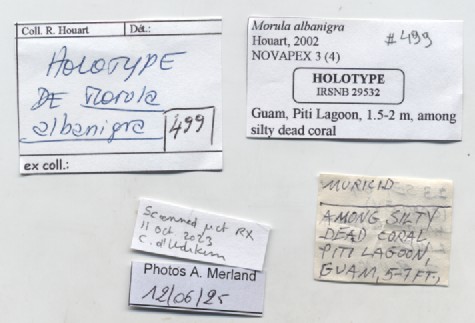 Coll. R. Houart Dét.:
HOLOTYPE
DE Morula
albanigra
499
ex coll.:
Morula albanigra
Houart, 2002
NOVAPEX 3 (4)
#499
HOLOTYPE
IRSNB 29532
Guam, Piti Lagoon, 1.5-2 m, among
silty dead coral
Scanned µct RX
11 oct 2023
C. d'Udekem
Photos A. Merland
12/06/25
MURICID
AMONG SILTY
DEAD CORAL
PITI LAGOON,
GUAM, 5-7 FT,